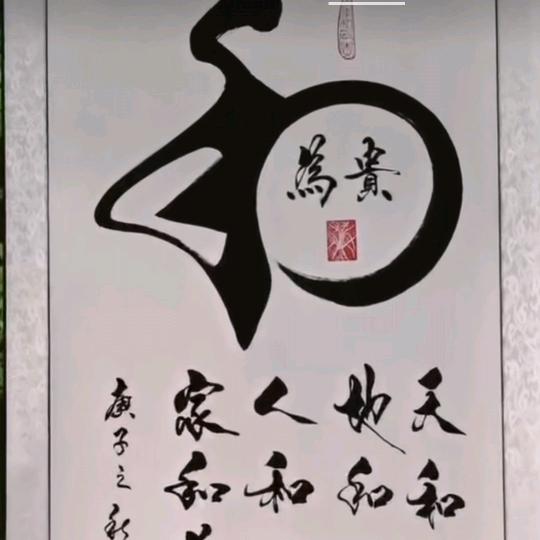 和
為貴
天和
地和
人和
家和
庚子之秋